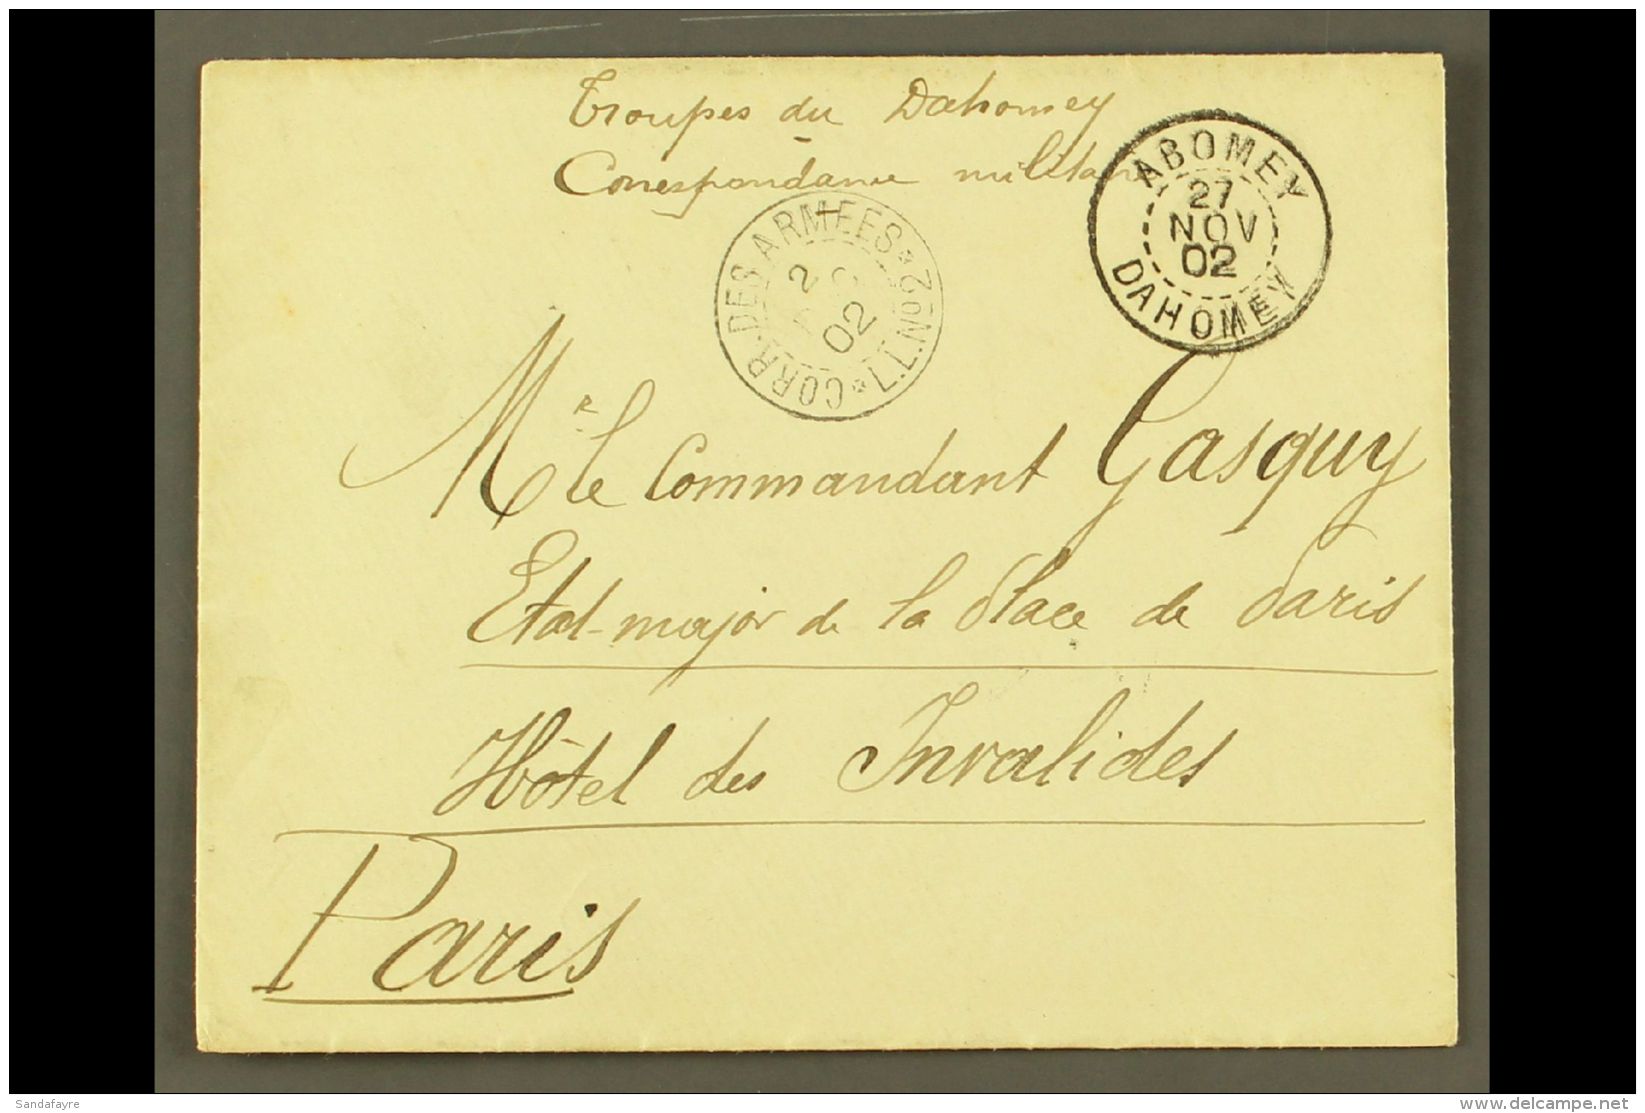 Troupes du Dahomey
Correspondance militaire
ABOMEY
27
NOV
02
DAHOMEY
CORR. DES ARMEES * L.L. No2 *
2
02
Mr le Commandant Gasquy
Etat-major de la Place de Paris
Hôtel des Invalides
Paris
Sandafayre
www.delcampe.net